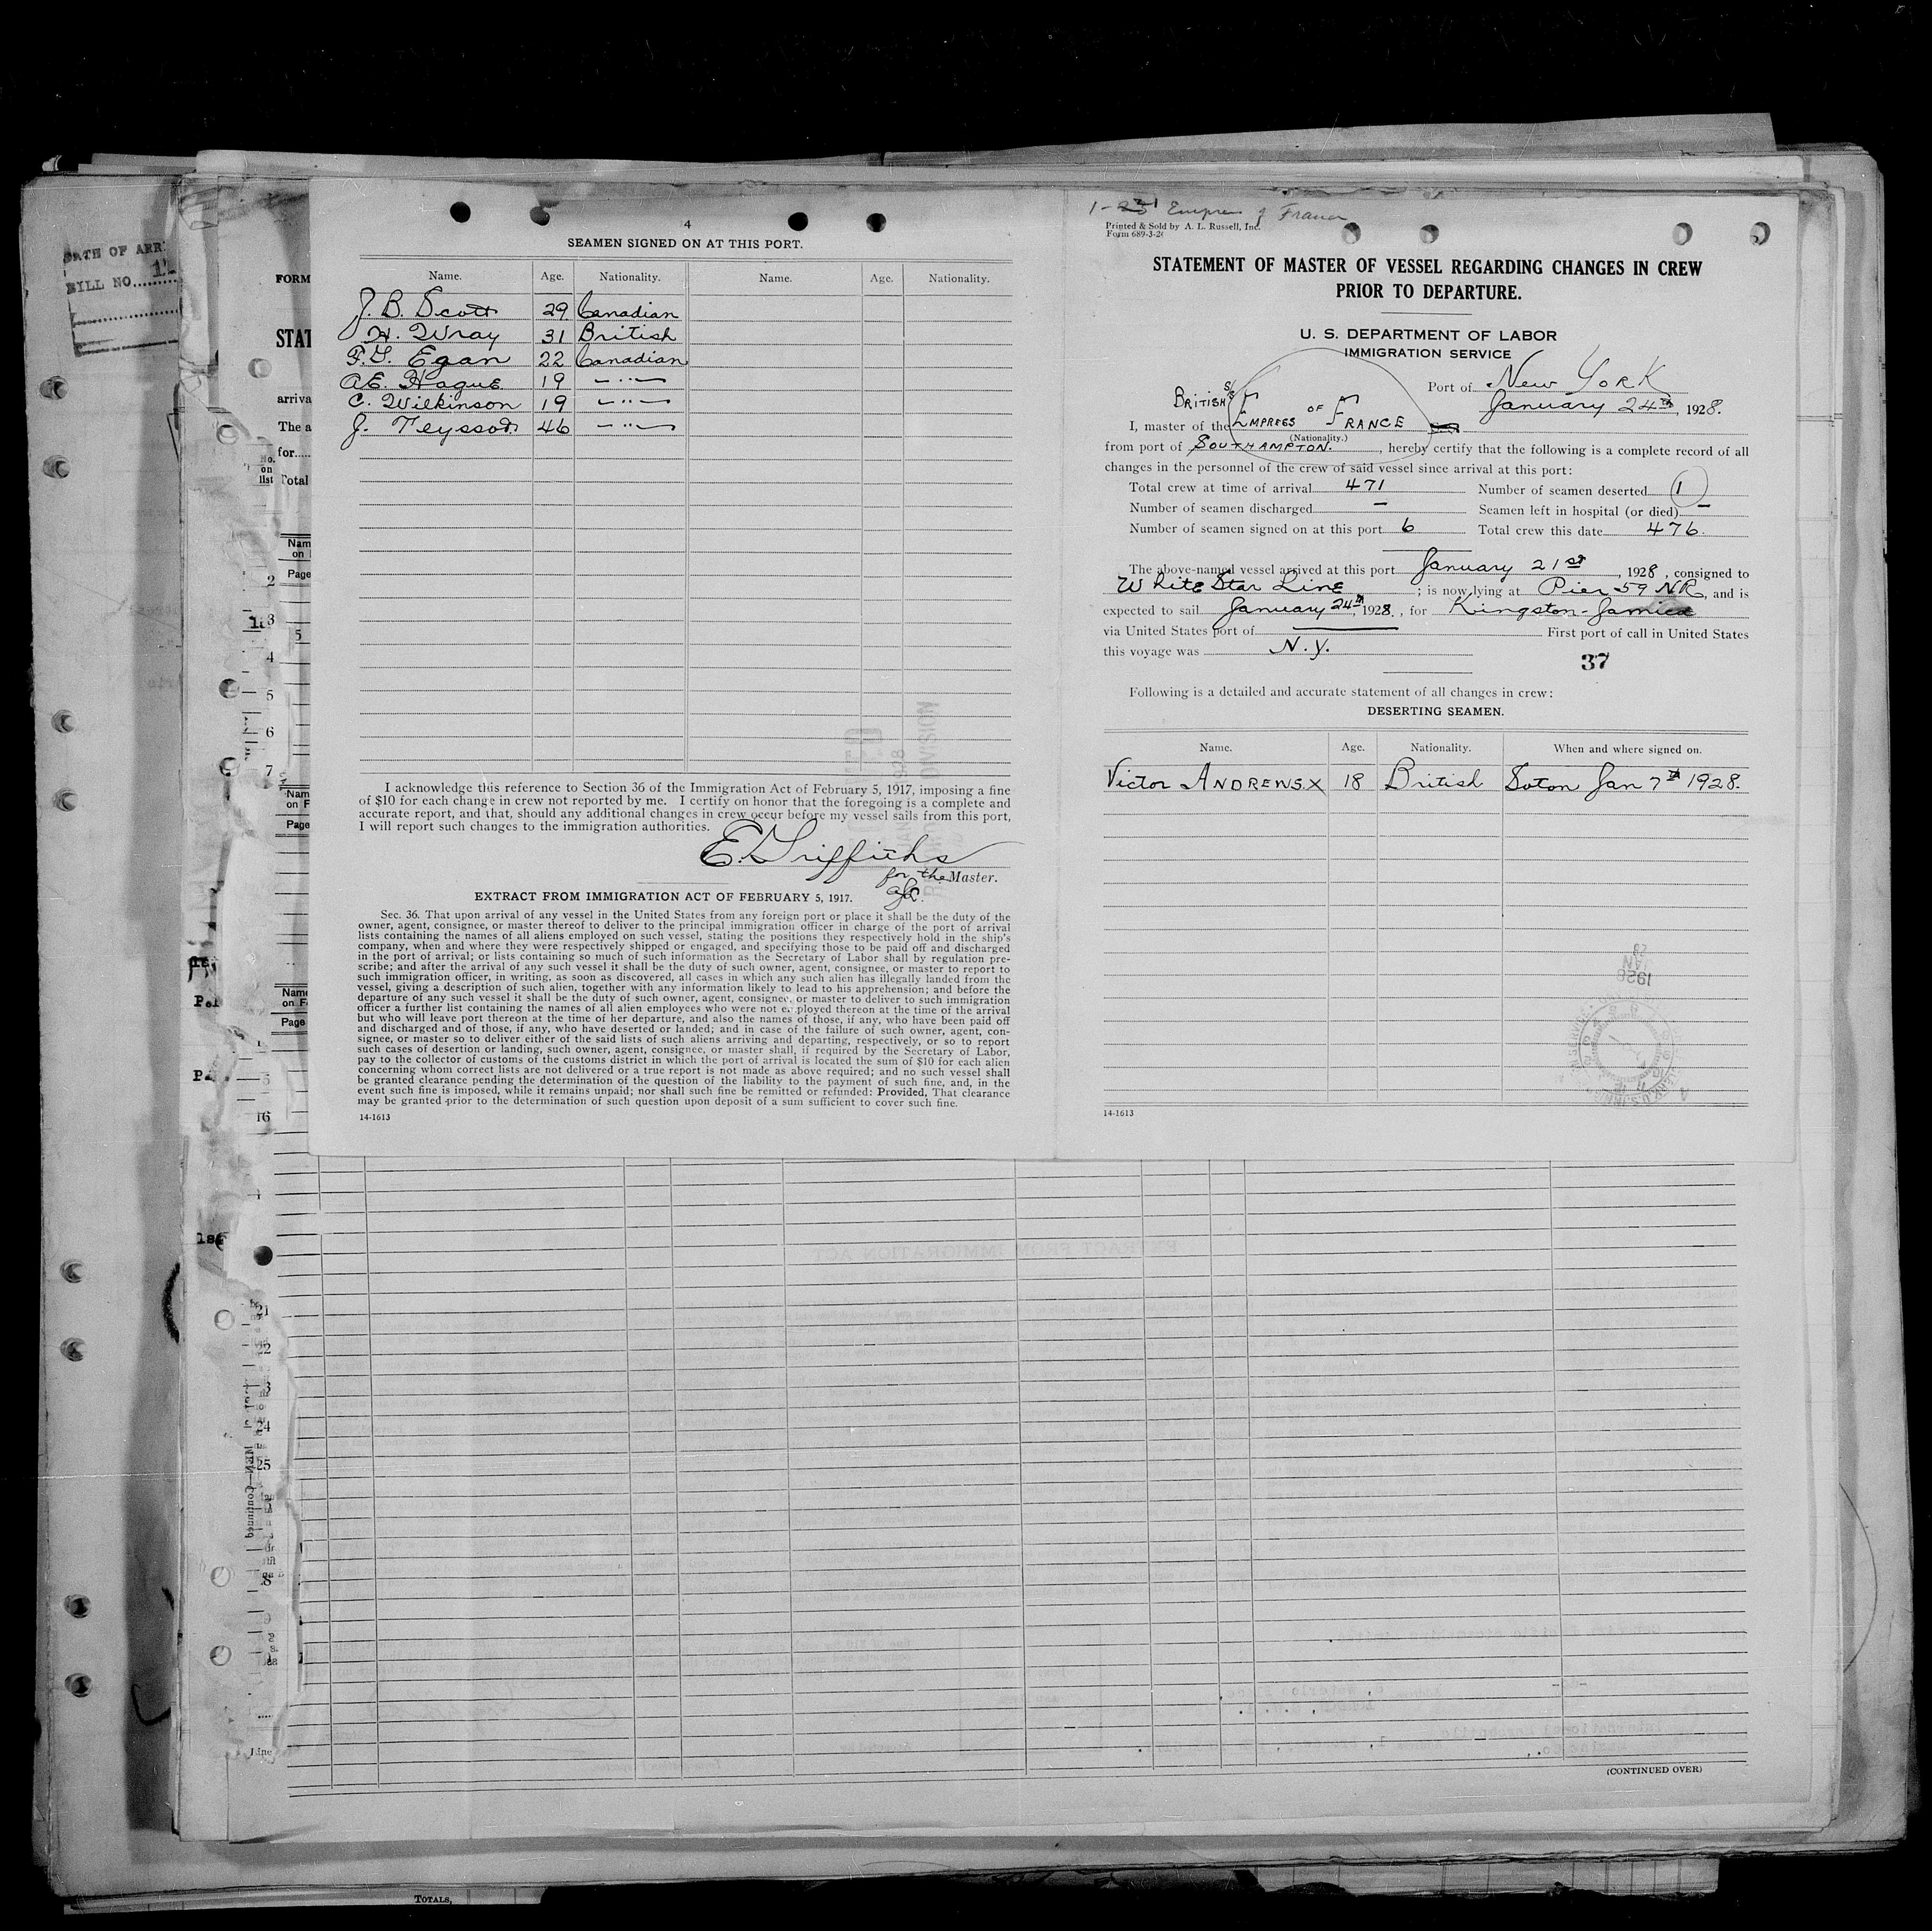 DATE OF ARR
BILL NO.
FORM
STAT
arriva
The a
for
Total
4
SEAMEN SIGNED ON AT THIS PORT.
Name. Age. Nationality. Name. Age. Nationality.
J. B. Scott 29 Canadian
H. Wray 31 British
F. G. Egan 22 Canadian
A.E. Hague 19 — " —
C. Wilkinson 19 — " —
J. Teyssod 46 — " —
I acknowledge this reference to Section 36 of the Immigration Act of February 5, 1917, imposing a fine
of $10 for each change in crew not reported by me. I certify on honor that the foregoing is a complete and
accurate report, and that, should any additional changes in crew occur before my vessel sails from this port,
I will report such changes to the immigration authorities.
E. Griffiths
for the Master.
EXTRACT FROM IMMIGRATION ACT OF FEBRUARY 5, 1917.
Sec. 36. That upon arrival of any vessel in the United States from any foreign port or place it shall be the duty of the
owner, agent, consignee, or master thereof to deliver to the principal immigration officer in charge of the port of arrival
lists containing the names of all aliens employed on such vessel, stating the positions they respectively hold in the ship's
company, when and where they were respectively shipped or engaged, and specifying those to be paid off and discharged
in the port of arrival; or lists containing so much of such information as the Secretary of Labor shall by regulation pre-
scribe; and after the arrival of any such vessel it shall be the duty of such owner, agent, consignee, or master to report to
such immigration officer, in writing, as soon as discovered, all cases in which any such alien has illegally landed from the
vessel, giving a description of such alien, together with any information likely to lead to his apprehension; and before the
departure of any such vessel it shall be the duty of such owner, agent, consignee, or master to deliver to such immigration
officer a further list containing the names of all alien employees who were not employed thereon at the time of the arrival
but who will leave port thereon at the time of her departure, and also the names of those, if any, who have been paid off
and discharged and of those, if any, who have deserted or landed; and in case of the failure of such owner, agent, con-
signee, or master so to deliver either of the said lists of such aliens arriving and departing, respectively, or so to report
such cases of desertion or landing, such owner, agent, consignee, or master shall, if required by the Secretary of Labor,
pay to the collector of customs of the customs district in which the port of arrival is located the sum of $10 for each alien
concerning whom correct lists are not delivered or a true report is not made as above required; and no such vessel shall
be granted clearance pending the determination of the question of the liability to the payment of such fine, and, in the
event such fine is imposed, while it remains unpaid; nor shall such fine be remitted or refunded: Provided, That clearance
may be granted prior to the determination of such question upon deposit of a sum sufficient to cover such fine.
14-1613
Empress of France
Printed & Sold by A. L. Russell, Inc.
Form 689-3-26
STATEMENT OF MASTER OF VESSEL REGARDING CHANGES IN CREW
PRIOR TO DEPARTURE.
U. S. DEPARTMENT OF LABOR
IMMIGRATION SERVICE
Port of New York
January 24th, 1928.
I, master of the British SS "Empress of France"
(Nationality.)
from port of Southampton., hereby certify that the following is a complete record of all
changes in the personnel of the crew of said vessel since arrival at this port:
Total crew at time of arrival 471 Number of seamen deserted 1
Number of seamen discharged — Seamen left in hospital (or died) —
Number of seamen signed on at this port 6 Total crew this date 476.
The above-named vessel arrived at this port January 21st, 1928, consigned to
White Star Line; is now lying at Pier 59 NR, and is
expected to sail January 24th, 1928, for Kingston-Jamica
via United States port of — First port of call in United States
this voyage was N.Y.
37
Following is a detailed and accurate statement of all changes in crew:
DESERTING SEAMEN.
Name. Age. Nationality. When and where signed on.
Victor Andrews. X 18 British Soton Jan 7th 1928.
14-1613
(CONTINUED OVER)
TOTALS,